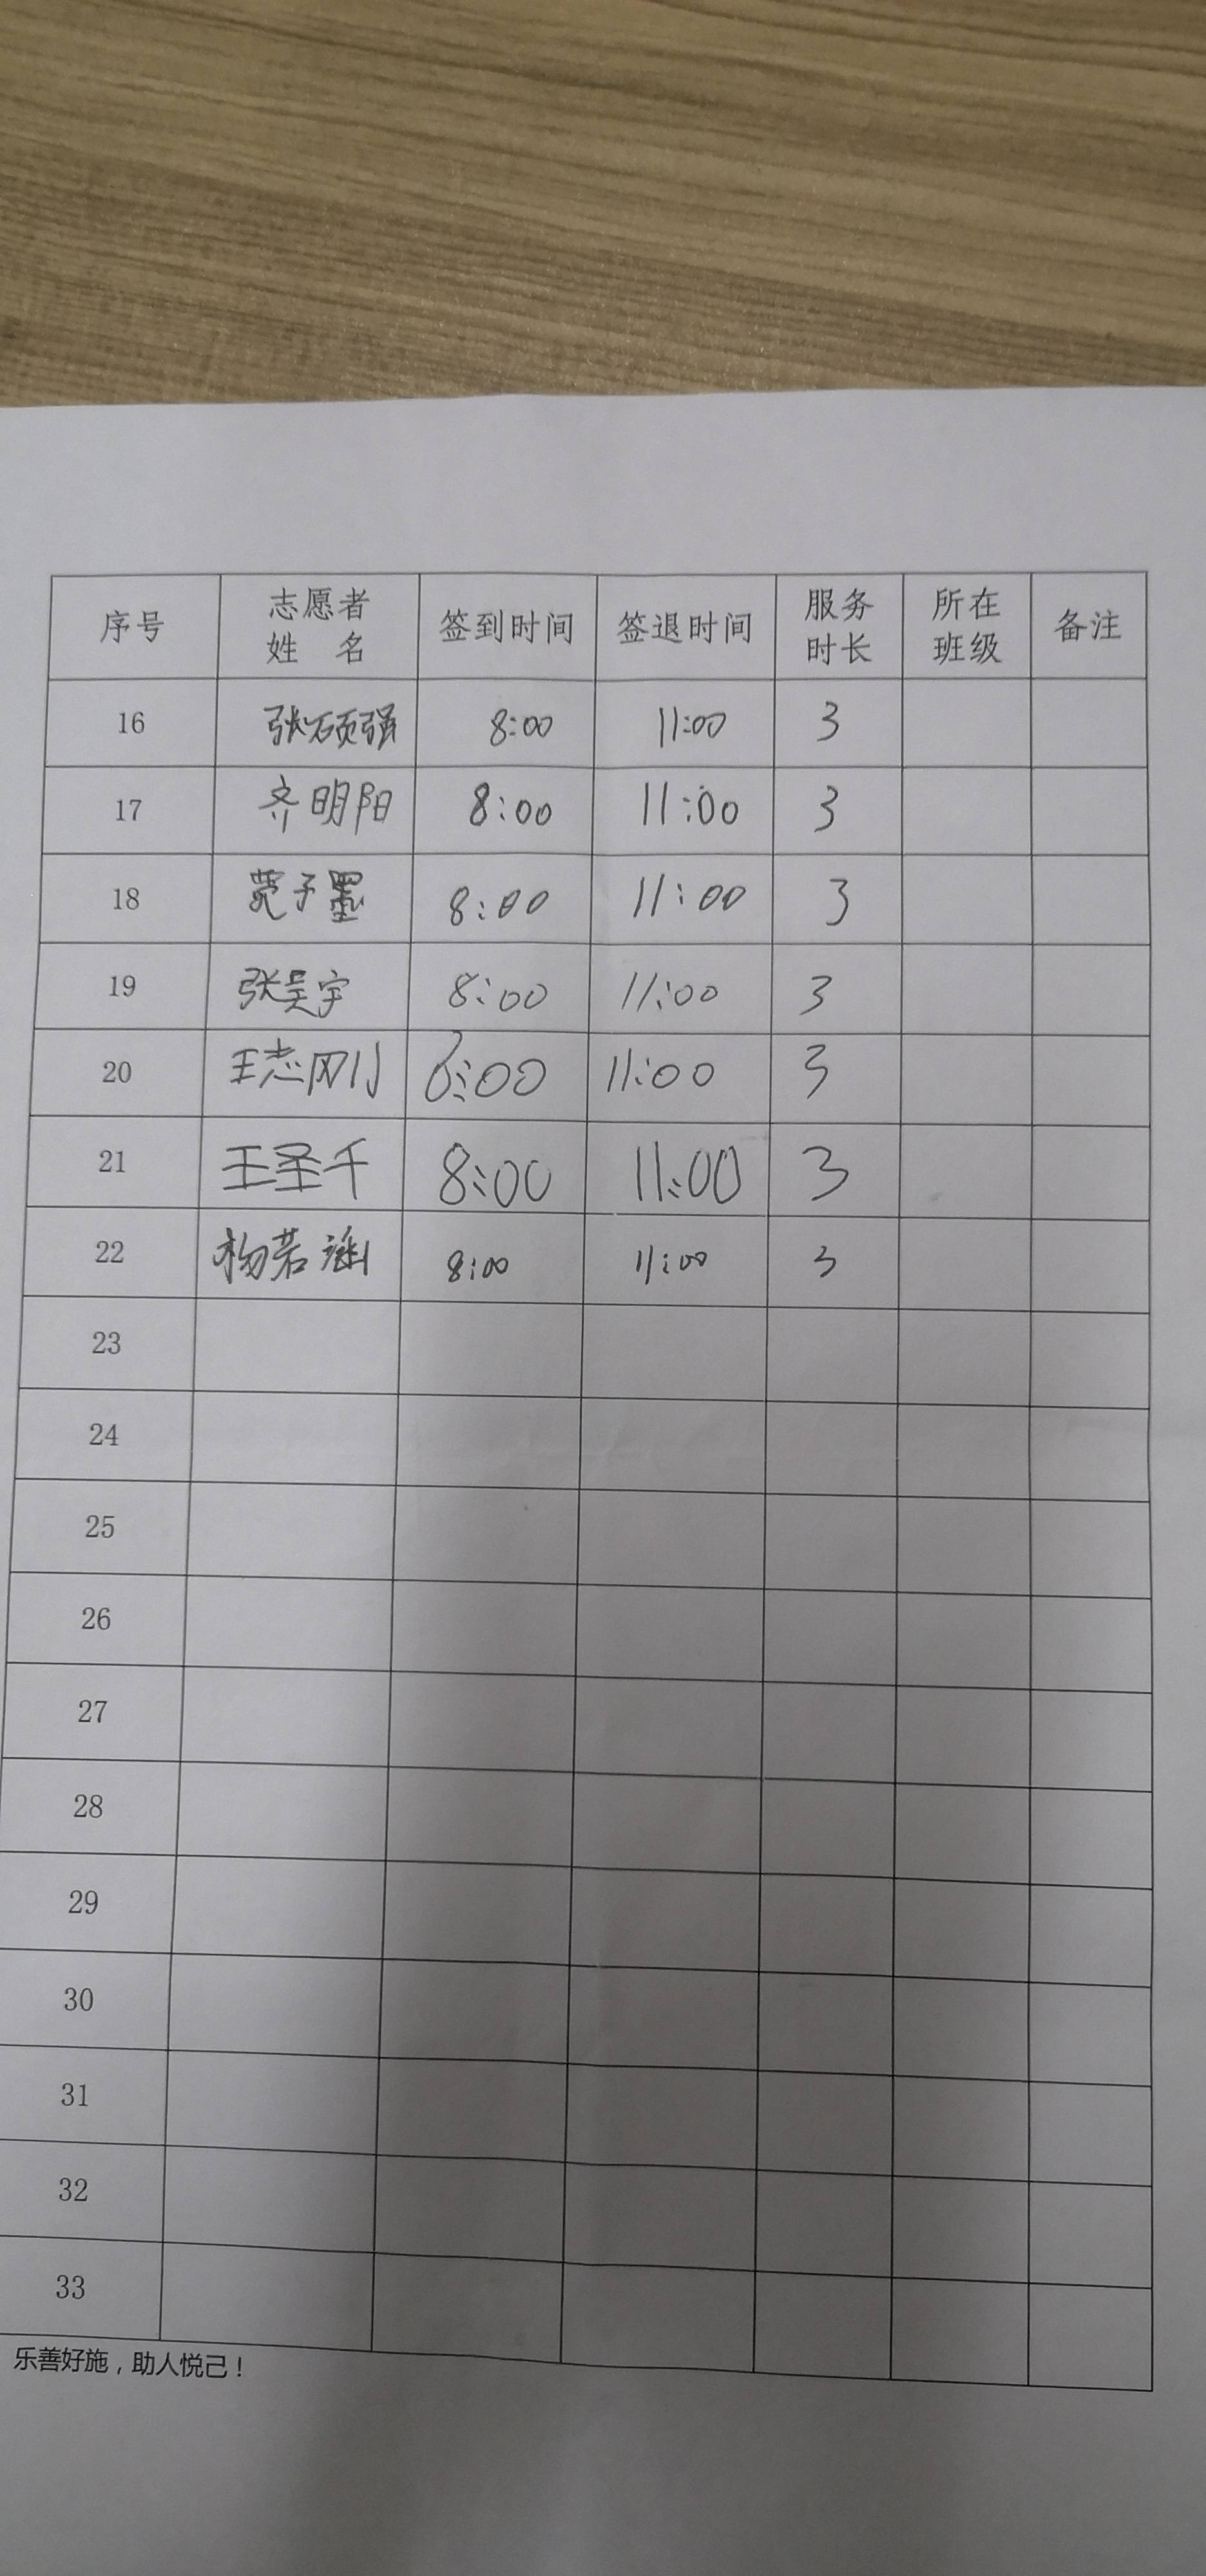 序号 志愿者姓名 签到时间 签退时间 服务时长 所在班级 备注
16 张硕强 8:00 11:00 3
17 齐明阳 8:00 11:00 3
18 子墨 8:00 11:00 3
19 张昊宇 8:00 11:00 3
20 王志刚 8:00 11:00 3
21 王圣千 8:00 11:00 3
22 杨若涵 8:00 11:00 3
23
24
25
26
27
28
29
30
31
32
33
乐善好施，助人悦己！